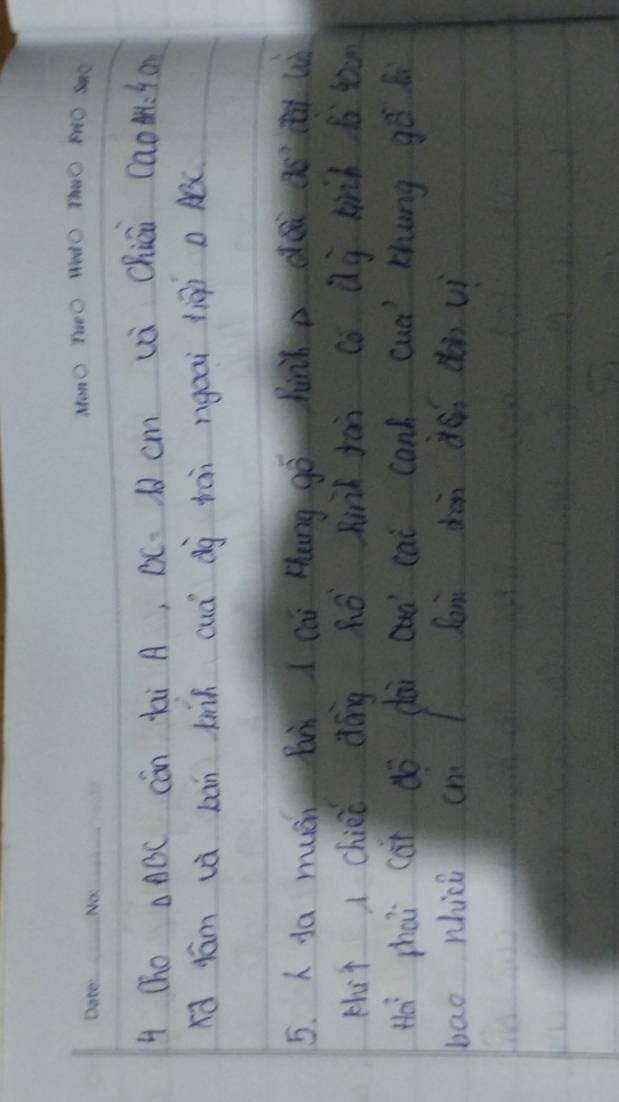 Date: No:
Mon Tue Wed Thu Fri Sun
4 Cho Δ ABC cân tại A, BC = 12 cm và chiều cao AH = 4 cm
Xđ tâm và bán kính của đg tròn ngoại tiếp Δ ABC.
5. ta muốn làm 1 cái khung gỗ hình Δ đều để đặt
khít 1 chiếc đồng hồ hình tròn có đg kính là 40cm
Hỏi phải cắt độ dài các cạnh của khung gỗ là
bao nhiêu cm / làm tròn đến đơn vị